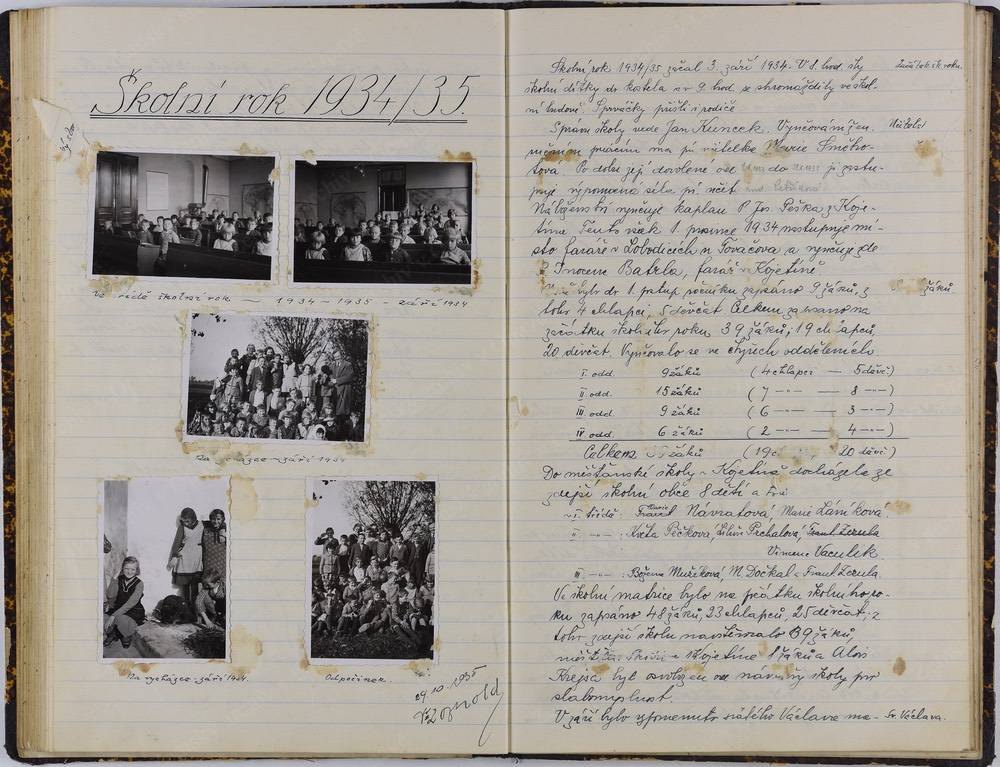 Školní rok 1934/35.
Ve třídě školní rok — 1934 – 1935 – září 1934
Na vycházce – září 1934
Na vycházce – září 1934.
Odpočinek.
29. 10. 1935
Školní rok 1934/35 začal 3. září 1934. V 8 hod. šly
Začátek šk. roku.
školní dítky do kostela a v 9 hod. se shromáždily ve škol-
ní budově. Prváčky přišli i rodiče
Správu školy vede Jan Kuncek. Vyučování žen.
Učitelé
ručním pracím má pí učitelka Marie Směko-
tova. Po dobu její dovolené od do ji zastu-
puje výpomocná síla pí učit
Náboženství vyučuje kaplan P. Jos. Peška z Koje-
tína. Tento však 1. prosince 1934 nastupuje mí-
sto faráře v Lobodicích u Tovačova a vyučuje zde
P. Inocenc Batrla, farář v Kojetíně
bylo do 1. postup. ročníku zapsáno 9 žáků, z
žáků
toho 4 chlapci, 5 děvčat. Celkem zapsáno na
začátku školního roku 39 žáků, 19 chlapců,
20 děvčat. Vyučovalo se ve čtyřech odděleních
I. odd. 9 žáků (4 chlapci — 5 děvč.)
II. odd. 15 žáků (7 —"— — 8 —"—)
III. odd. 9 žáků (6 —"— — 3 —"—)
IV. odd. 6 žáků (2 —"— — 4 —"—)
Celkem žáků (19 c. 20 děvč.)
Do měšťanské školy v Kojetíně docházelo ze
zdejší školní obce 8 dětí a
v I. třídě: Návratová Marie Láníková
II —"— : Květa Pěčková, Libuše Prchalová, Frant. Zezula
Vincenc Vaculík.
III —"— : Božena Mužíková, M. Dočkal a Frant. Zezula
Ve školní matrice bylo na počátku školního ro-
ku zapsáno 48 žáků, 23 chlapců, 25 děvčat, z
toho zdejší školu navštěvovalo 39 žáků,
měšťan. školu v Kojetíně 8 žáků a Alois
Krejsa byl osvobozen od návštěvy školy pro
slabomyslnost.
V září bylo vzpomenuto svatého Václava ma-
Sv. Václava.